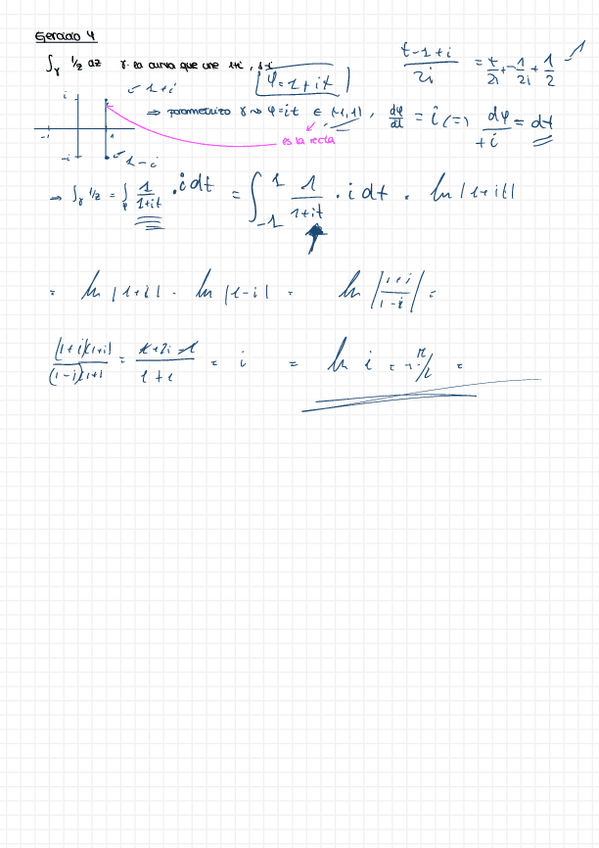 Ejercicio 4
∫_γ 1/z dz γ: la curva que une 1+i, 1-i
φ = 1+it
(t-1+i)/2i = t/2i + -1/2i + 1/2
i 1+i
⇒ parametrizo γ φ=it ∈ (-1,1), dφ/dt = i (=) dφ/+i = dt
-1 1
es la recta
-i 1-i
⇒ ∫_γ 1/z = ∫ 1/(1+it) · i dt = ∫_{-1}^{1} 1/(1+it) · i dt = ln|1+it|
= ln|1+i| - ln|1-i| = ln|(1+i)/(1-i)| =
(1+i)(1+i)/(1-i)(1+i) = (1+2i-1)/(1+1) = i = ln i = π/2 =